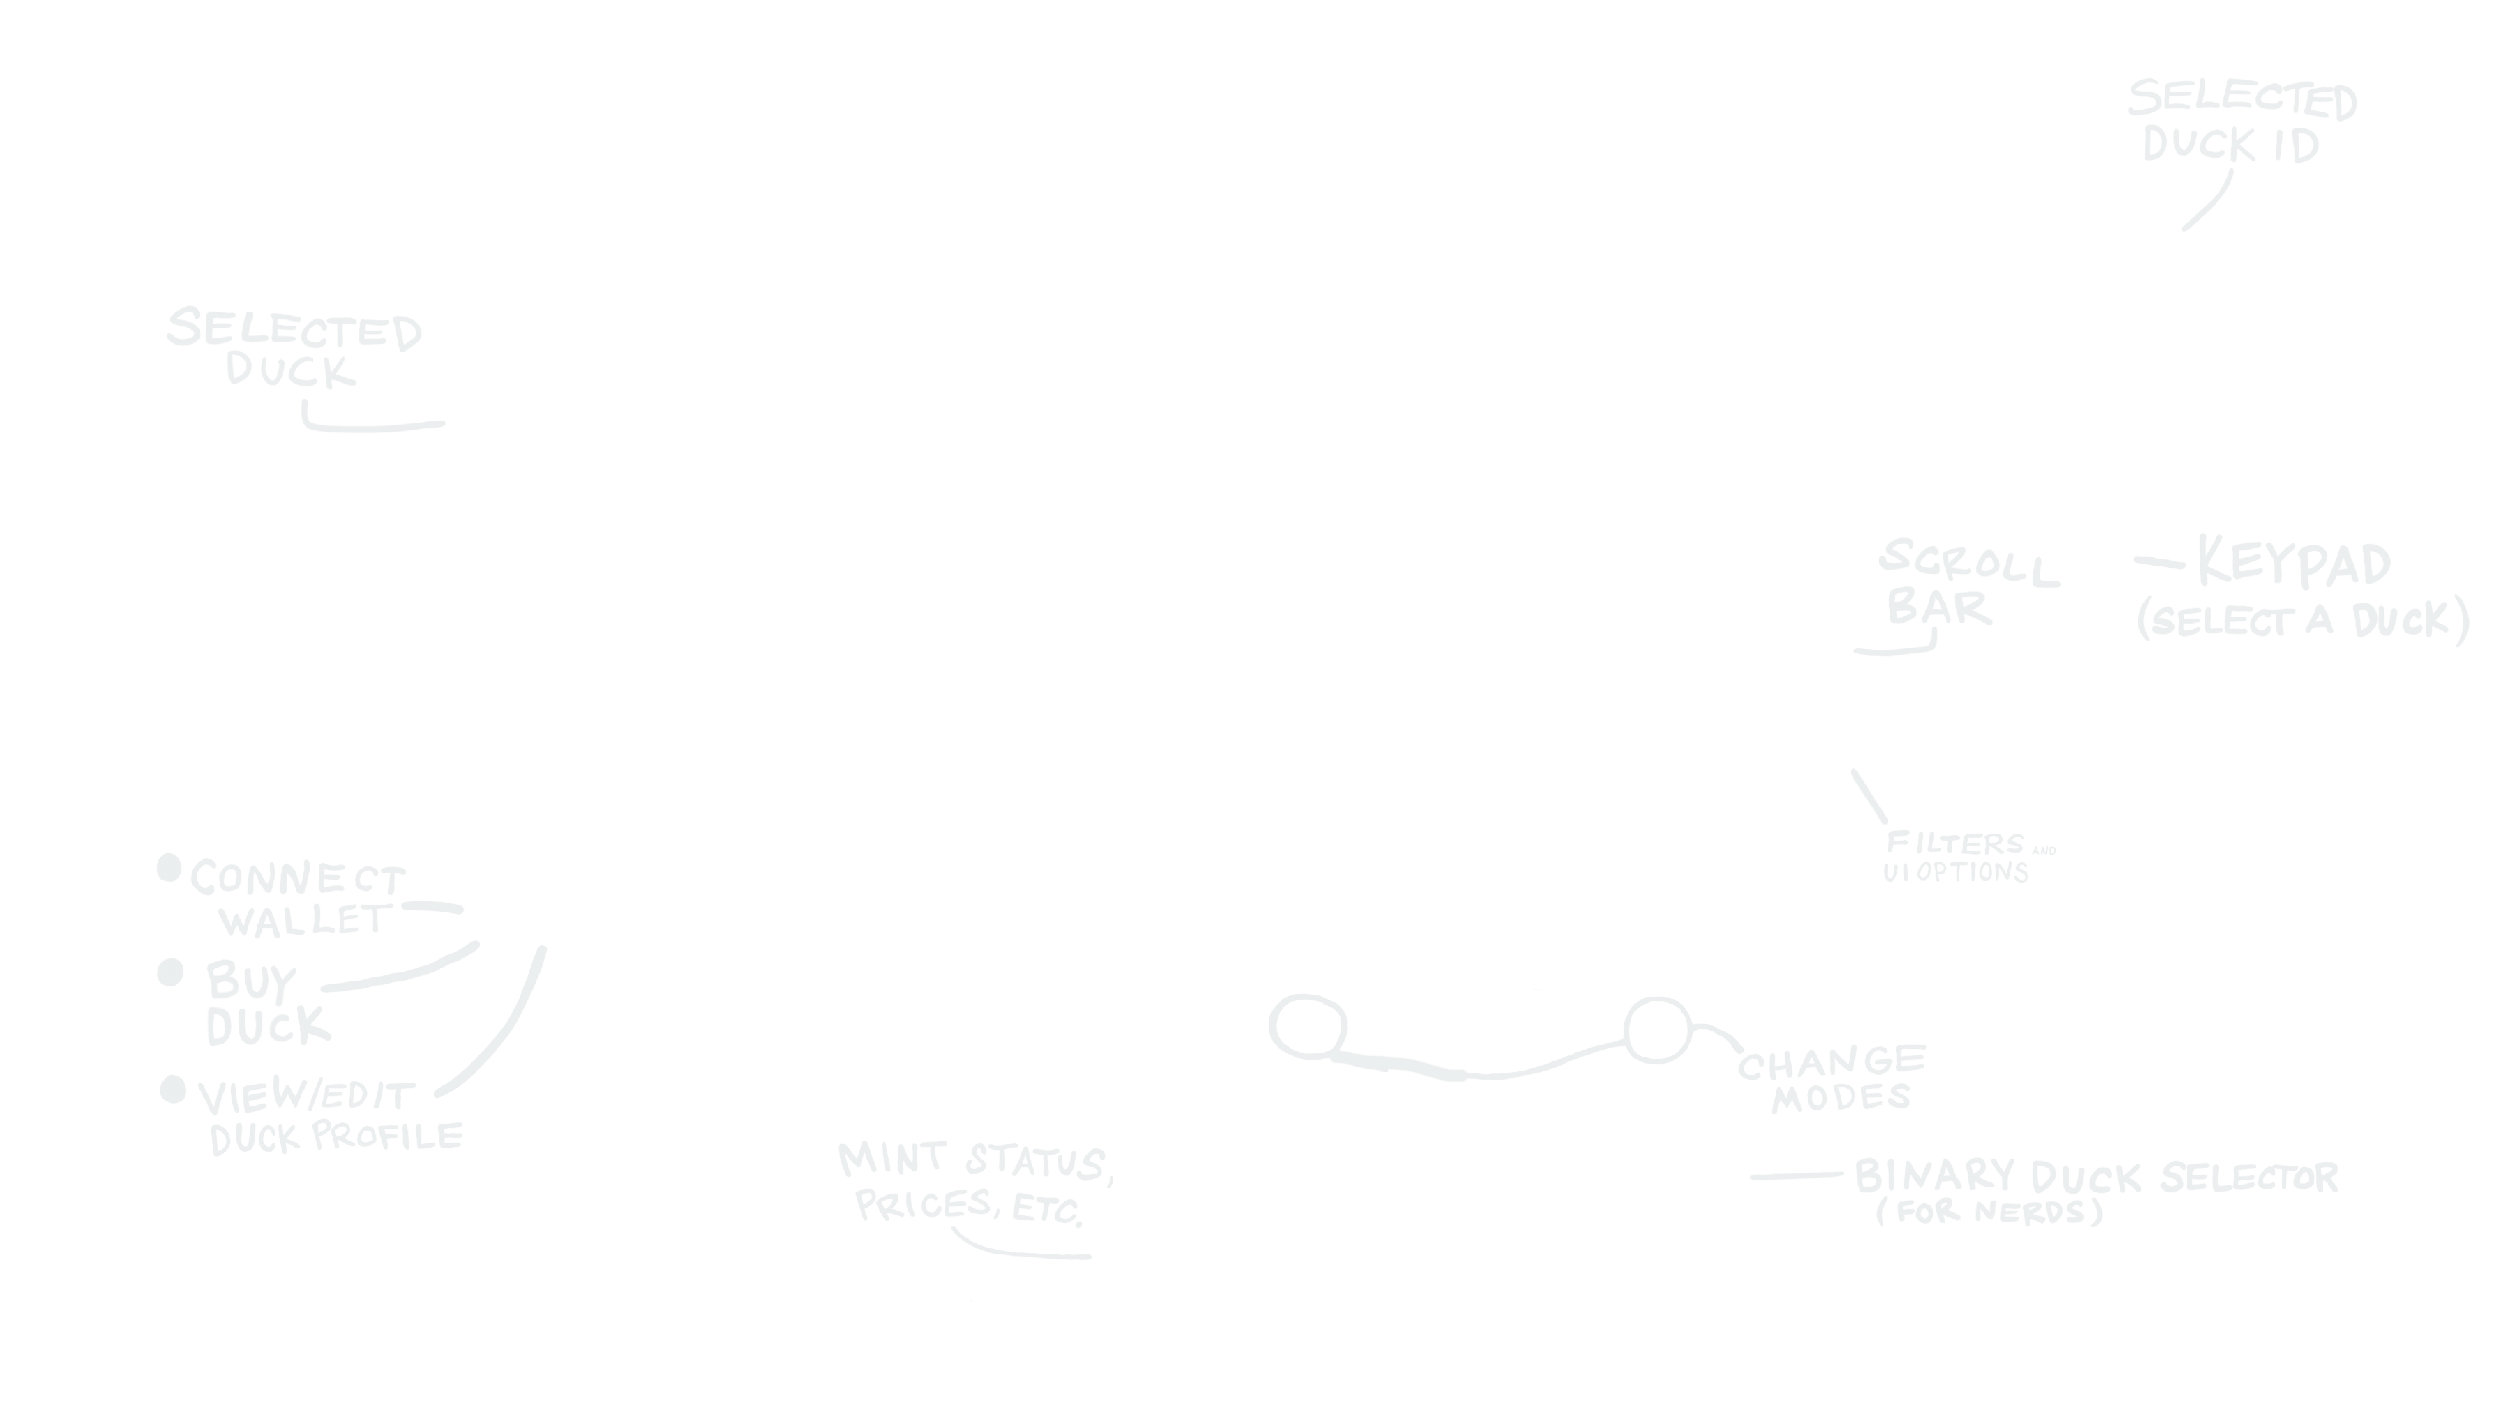 SELECTED
DUCK ID
SELECTED
DUCK
SCROLL
BAR
KEYPAD
(SELECT A DUCK)
FILTERS AND
UI OPTIONS
• CONNECT
WALLET
• BUY
DUCK
• VIEW/EDIT
DUCK PROFILE
CHANGE
MODES
MINT STATUS,
PRICES, ETC.
BINARY DUCK SELECTOR
(FOR NERDS)